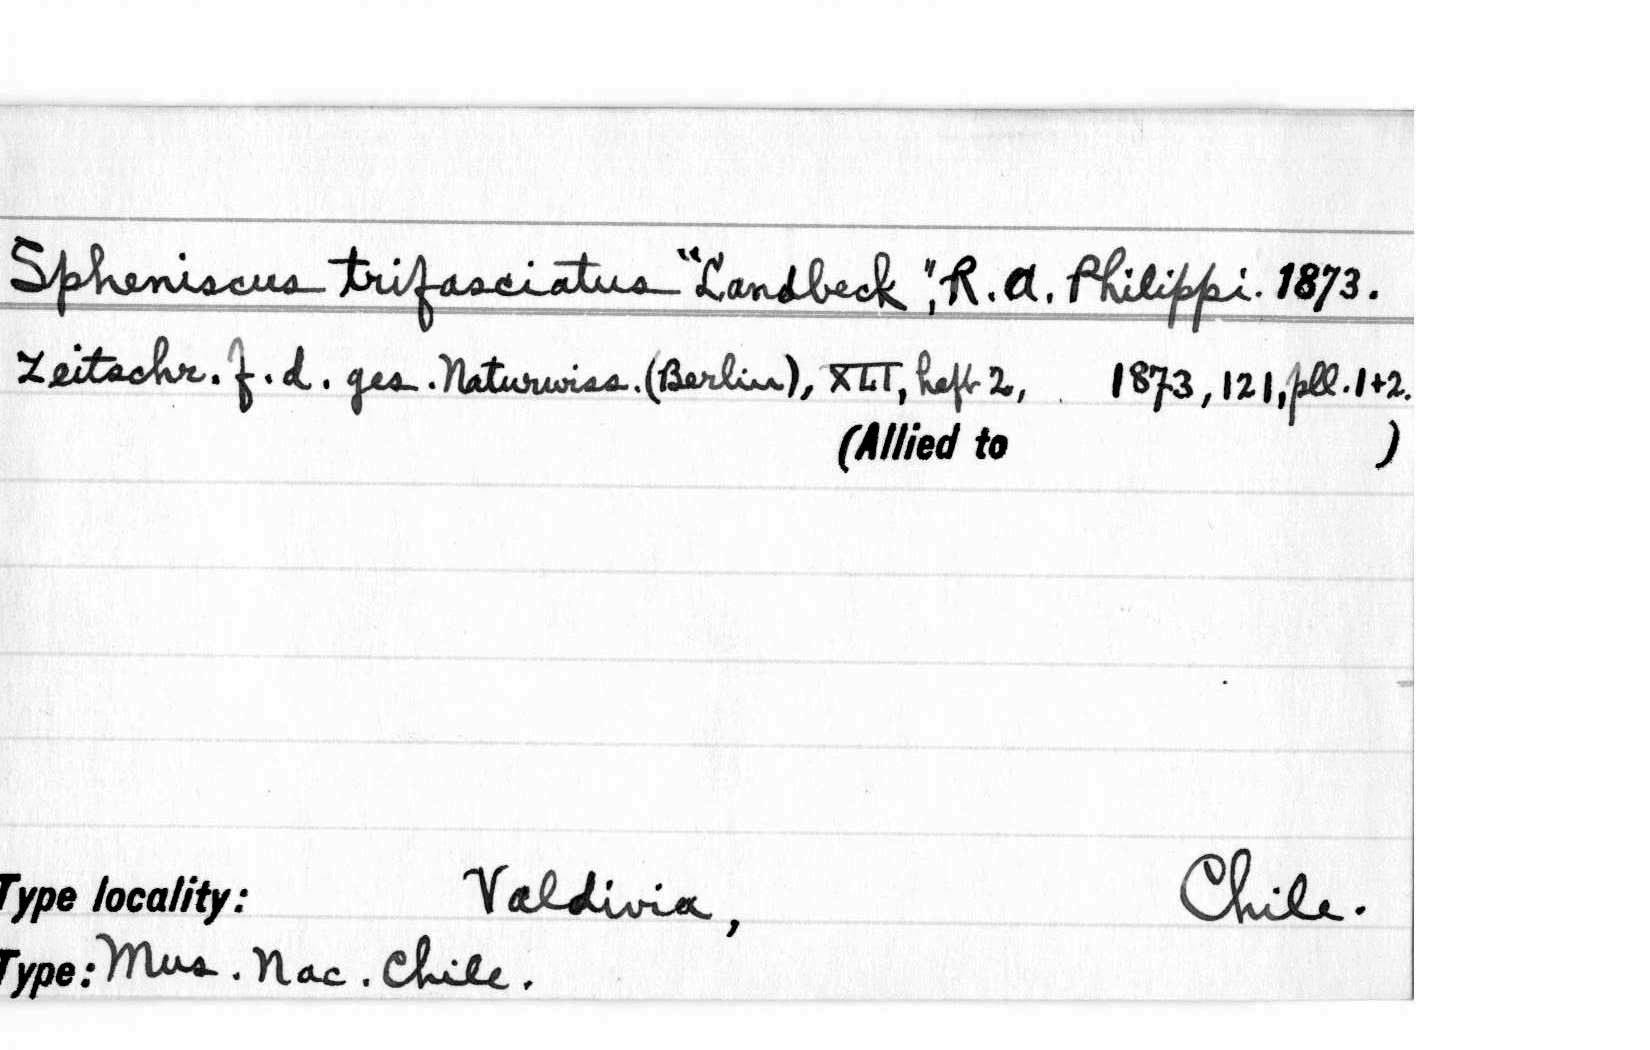 Spheniscus trifasciatus "Landbeck", R. A. Philippi. 1873.
Zeitschr. f. d. ges. Naturwiss. (Berlin), XLI, heft 2, 1873, 121, pll. 1+2.
(Allied to )
Type locality: Valdivia, Chile.
Type: Mus. Nac. Chile.